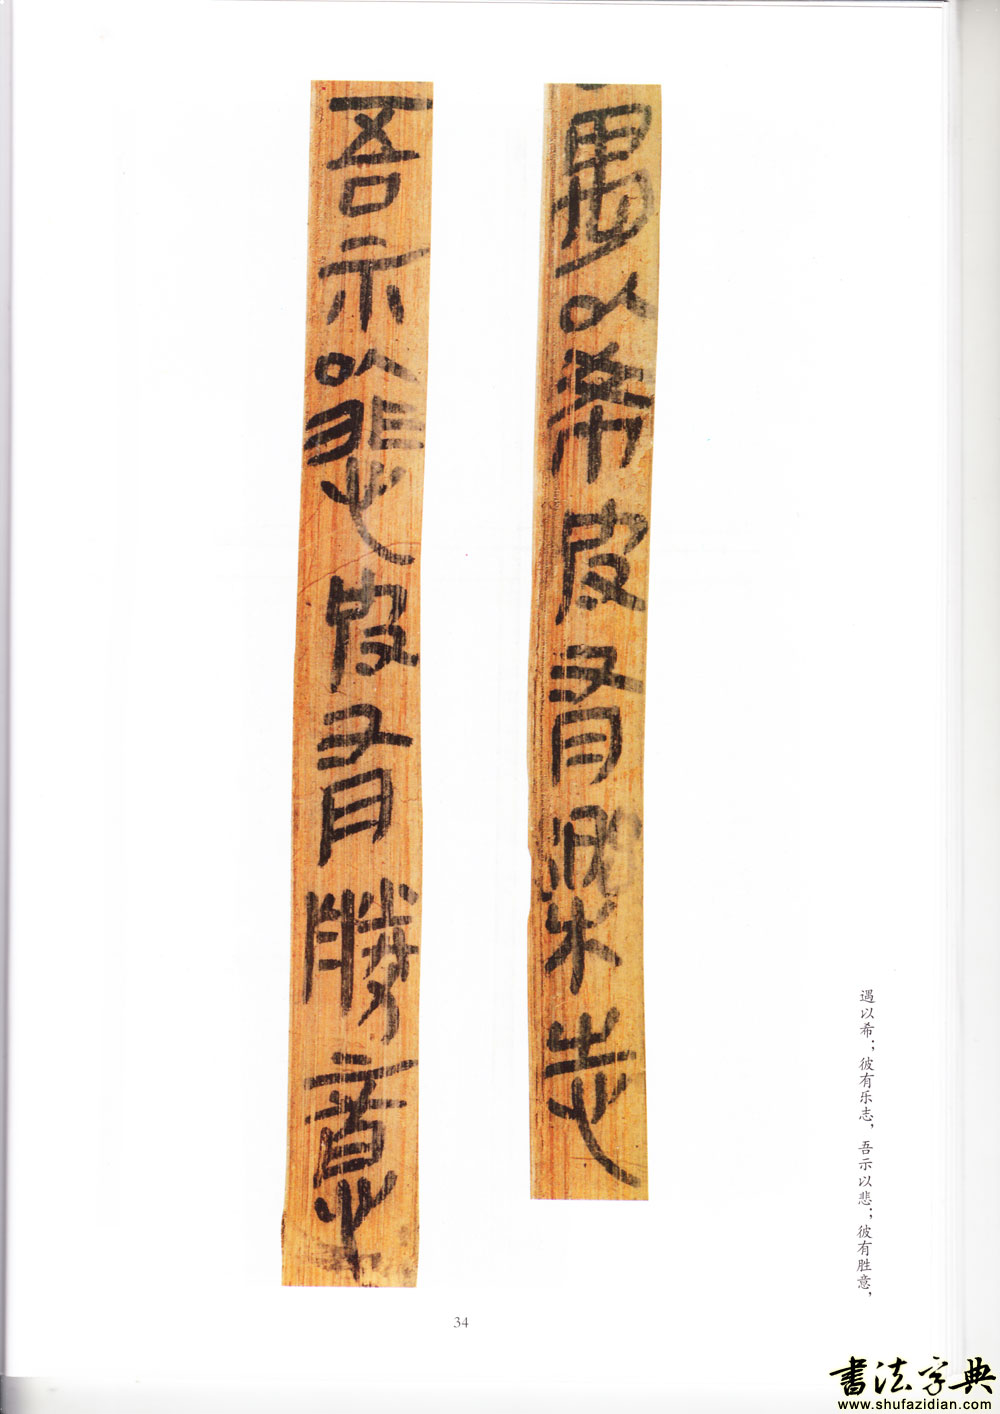 禺以希皮有樂志
吾示以悲皮有勝意
遇以希；彼有乐志，吾示以悲；彼有胜意，
34
书法字典
www.shufazidian.com